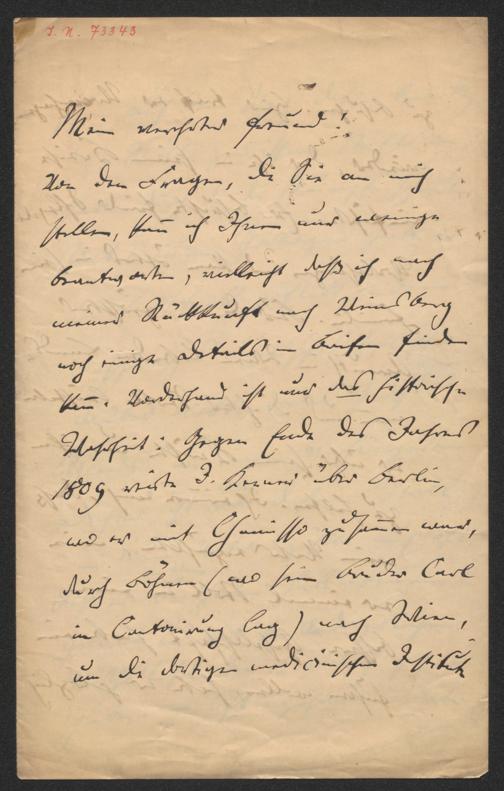 I. N. 73343
Mein verehrter Freund!
Von den Fragen, die Sie an mich
stellen, kann ich Ihnen nur wenige
beantworten, vielleicht daß ich nach
meiner Rückkunft nach Weinsberg
noch einige Details in Briefen finden
kann. Vorderhand ist nur das historische
Wahrheit: Gegen Ende des Jahres
1809 reiste J. Kerner über Berlin,
wo er mit Chamisso zusammen war,
durch Böhmen (wo sein Bruder Carl
in Cantonirung lag) nach Wien,
um die dortigen medicinischen Institute